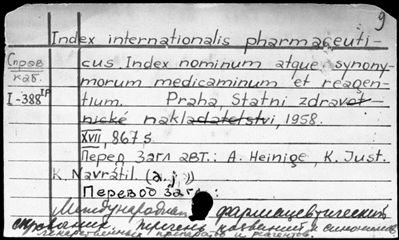 9
Index internationalis pharmaceuti-
Справ. cus. Index nominum atque synony-
каб. morum medicaminum et reagen-
I-388 tium. Praha, Statni zdravot-
nické nakladatelstvi, 1958.
XVII, 867 s
Перед загл авт.: A. Heinige, K. Just.
K. Navrátil. (а. j.)
Перевод загл:
Международный фармацевтический
справочник, перечень названий и синонимов
лекарственных препаратов и реагентов.